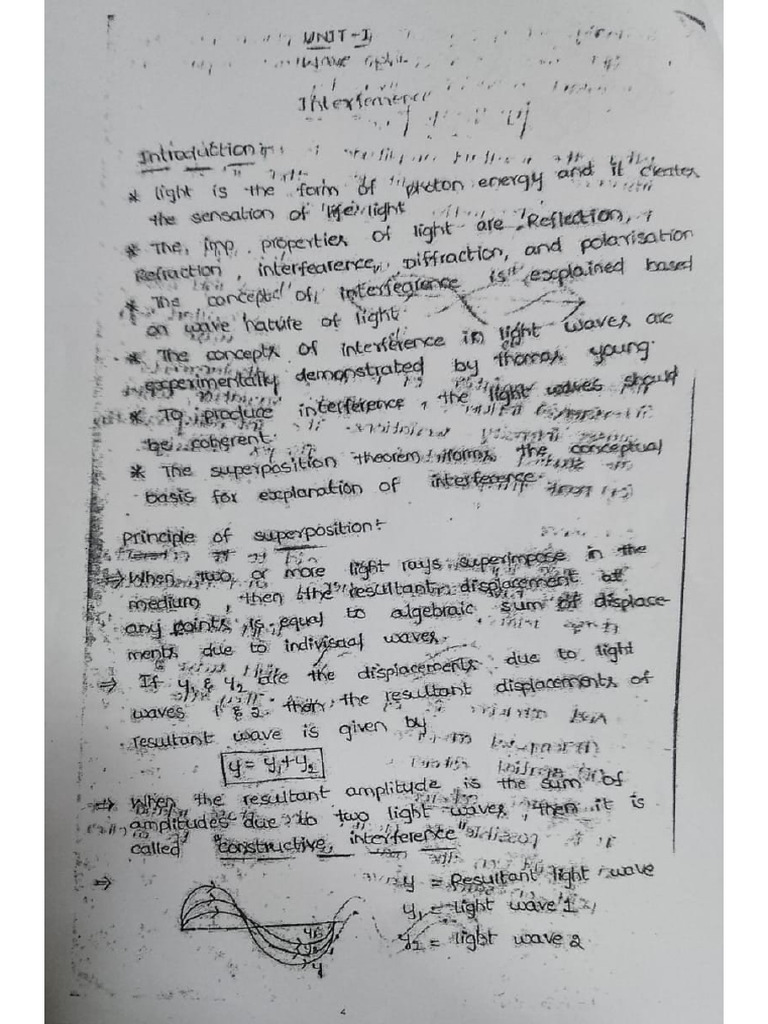 UNIT-I
Wave
Interference
Introduction :-
* light is the form of photon energy and it creates
the sensation of life light
* The imp properties of light are Reflection,
Refraction, interfearence, Diffraction, and polarisation
* The concept of interfearence is explained based
on wave nature of light.
* The concepts of interference in light waves are
experimentally demonstrated by thomas young.
* To produce interference, the light waves should
be coherent.
* The superposition theorem forms the conceptual
basis for explanation of interference.
principle of superposition:-
⇒ When two or more light rays superimpose in the
medium, then the resultant displacement at
any points is equal to algebraic sum of displace-
ments due to indivisual waves.
⇒ If y₁ & y₂ are the displacements due to light
waves 1 & 2 then the resultant displacements of
resultant wave is given by
y = y₁+y₂
⇒ When the resultant amplitude is the sum of
amplitudes due to two light waves, then it is
called "constructive interference"
⇒ y = Resultant light wave
y₁ = light wave 1
y₂ = light wave 2
y